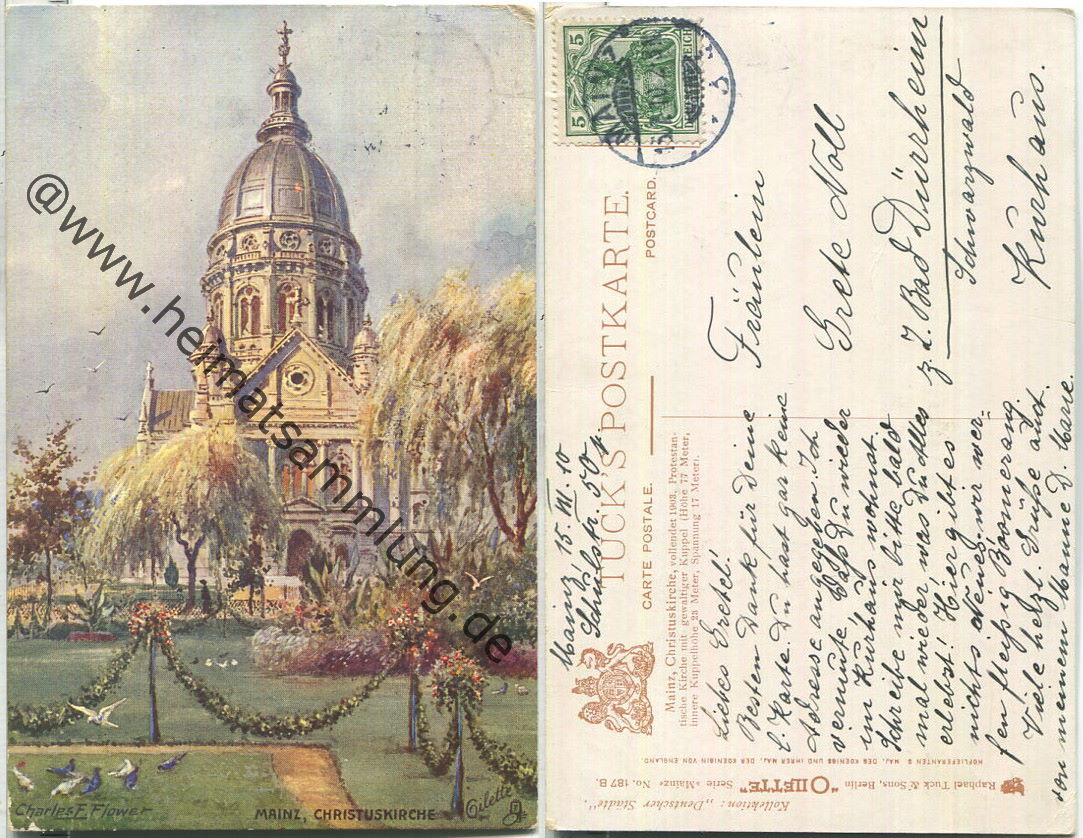 @www.heimatsammlung.de
Charles E. Flower
MAINZ, CHRISTUSKIRCHE
Oilette
5 5
5
REICH
MAINZ
3
TUCK'S POSTKARTE.
CARTE POSTALE.
POSTCARD.
Mainz, Christuskirche, vollendet 1903. Protestan-
tische Kirche mit gewaltiger Kuppel (Höhe 77 Meter,
innere Kuppelhöhe 23 Meter, Spannung 17 Meter).
Mainz, 15. III. 10
Schulstr. 50
Liebes Gretel!
Besten Dank für Deine
l. Karte. Du hast gar keine
Adresse angegeben. Ich
vermute daß Du wieder
im Kurhaus wohnst.
Schreibe mir bitte bald
mal wieder was Du Alles
erlebst! Hier gibt es
nichts Neues, wir wer-
fen fleißig Bomerang.
Viele herzl. Grüße auch
von meinem Manne D. Marie.
Fräulein
Grete Noll
z. Z. Bad Dürrheim
Schwarzwald
Kurhaus.
HOFLIEFERANTEN S. MAJ. DES KOENIGS UND IHRER MAJ. DER KOENIGIN VON ENGLAND.
Raphael Tuck & Sons, Berlin "OILETTE" Serie »Mainz« No. 187 B.
Kollektion: „Deutscher Städte".